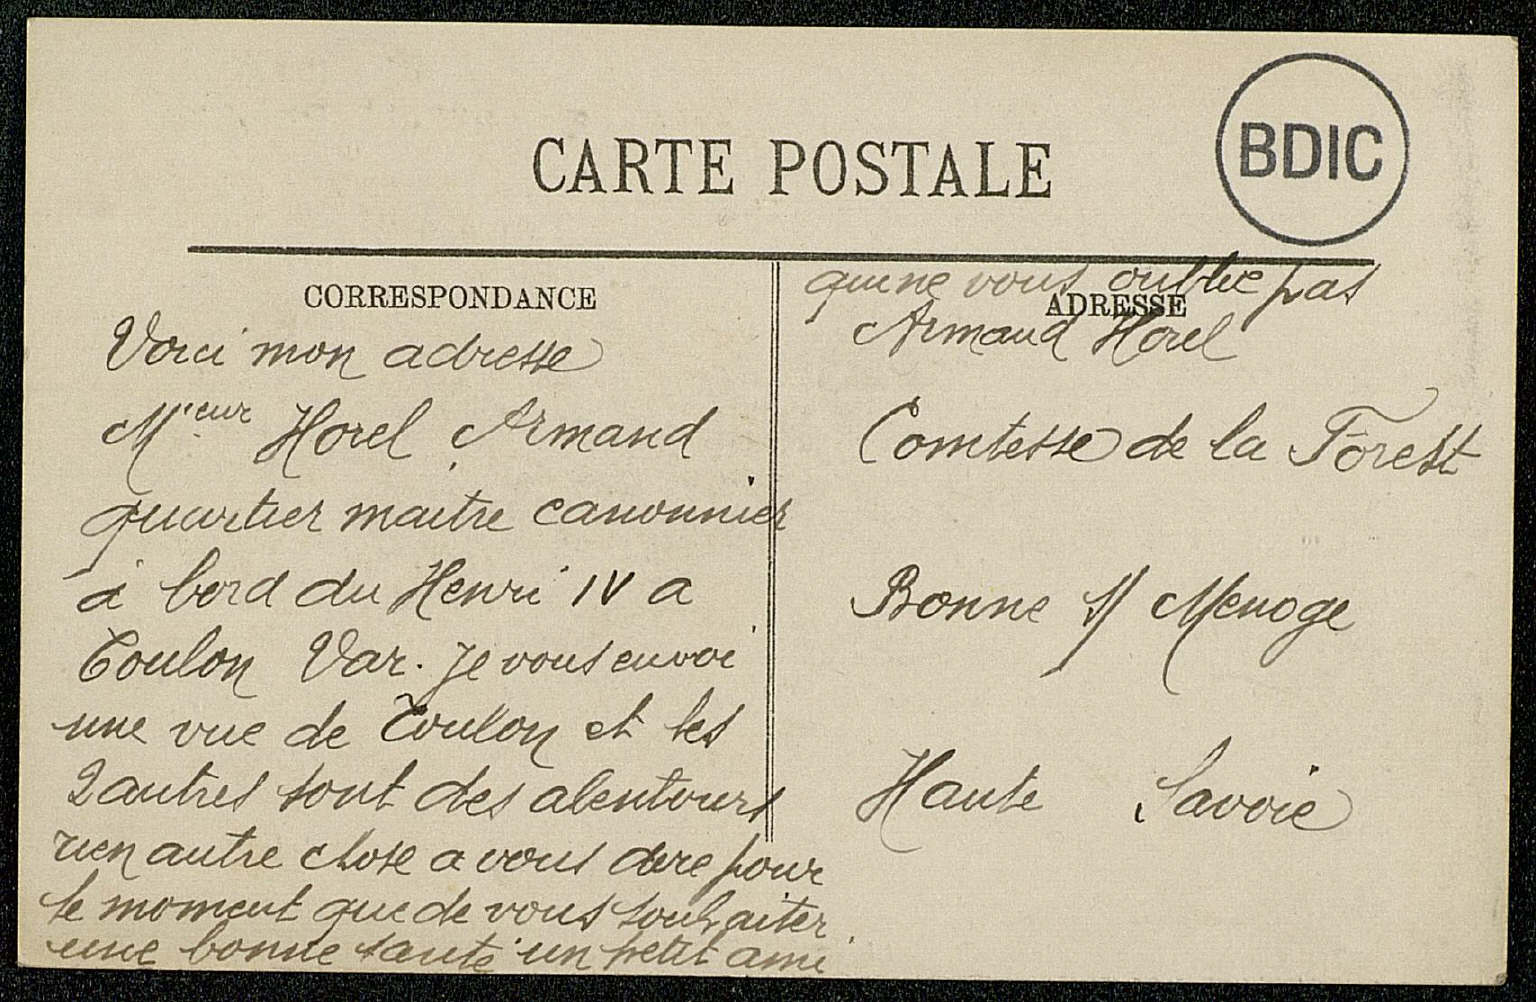 CARTE POSTALE
BDIC
CORRESPONDANCE
Voici mon adresse
Mieur Horel Armand
quartier maitre canonnier
à bord du Henri IV a
Toulon Var. je vous envoi
une vue de Toulon et les
2 autres sont des alentours
rien autre chose a vous dire pour
le moment que de vous souhaiter
une bonne santé un petit ami
qui ne vous oublie pas
ADRESSE
Armand Horel
Comtesse de la Forest
Bonne s/ Menoge
Haute Savoie